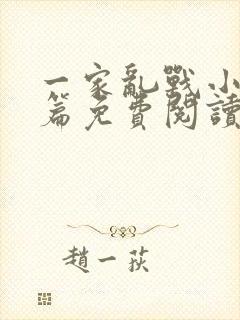 一家亂戰小
篇免費閱讀
趙一荻